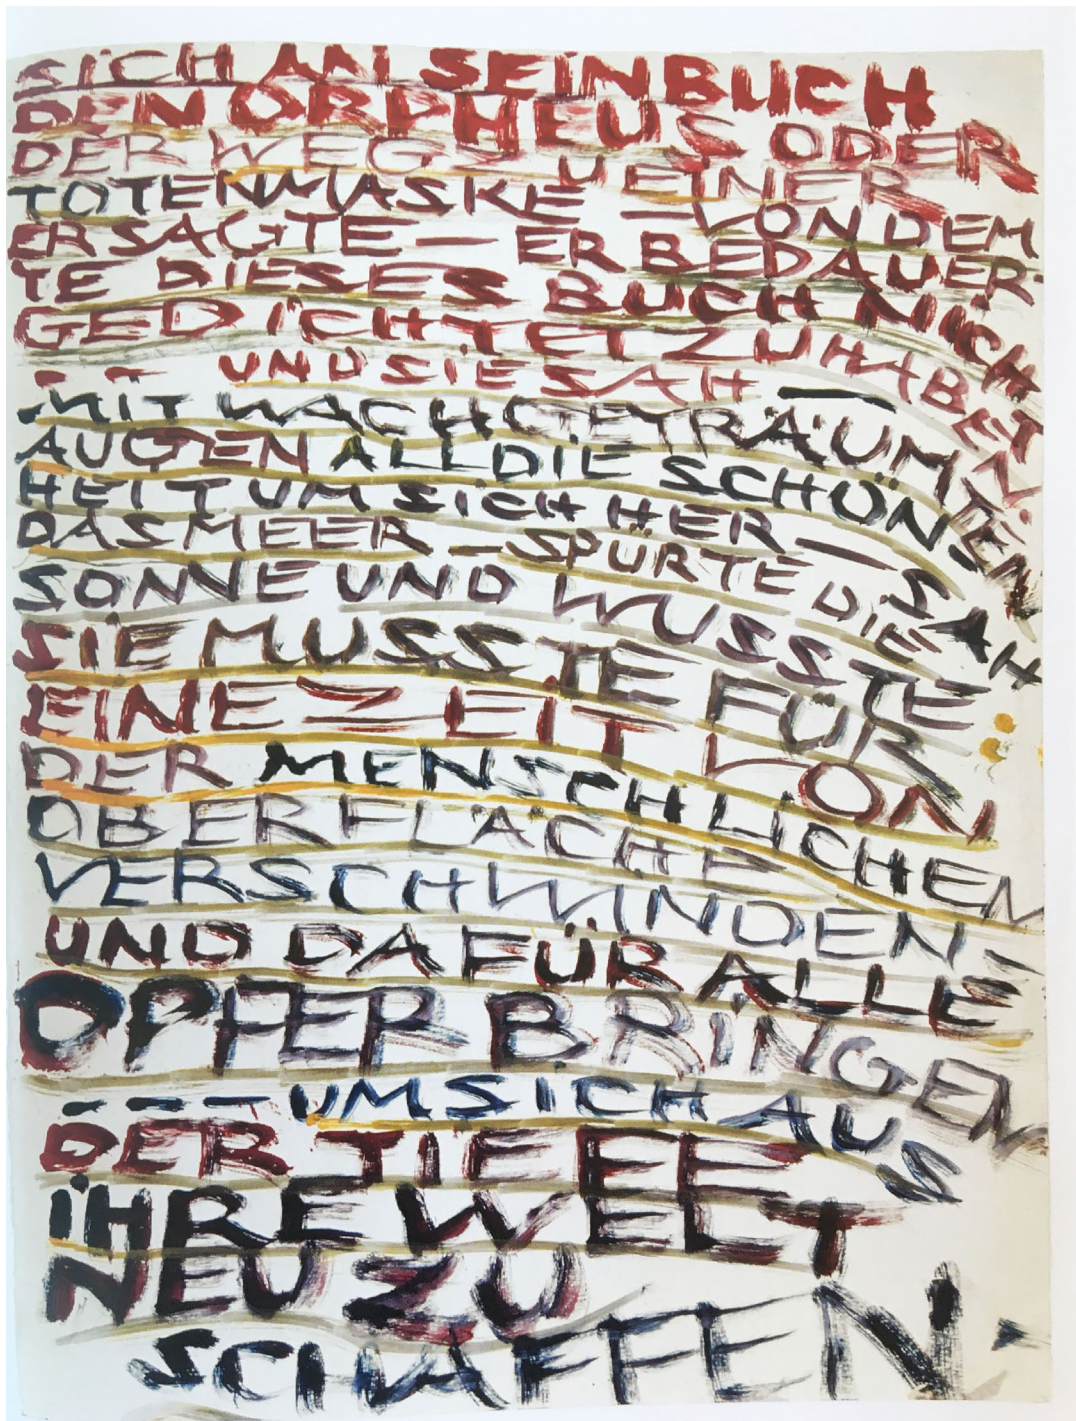 SICH AN SEIN BUCH
DEN ORPHEUS ODER
DER WEG ZU EINER
TOTENMASKE — VON DEM
ER SAGTE — ER BEDAUER-
TE DIESES BUCH NICHT
GEDICHTET ZU HABEN
-- UND SIE SAH —
MIT WACHGETRÄUMTEN
AUGEN ALL DIE SCHÖN
HEIT UM SICH HER — SAH
DAS MEER — SPÜRTE DIE
SONNE UND WUSSTE
SIE MUSSTE FÜR
EINE ZEIT VON
DER MENSCHLICHEN
OBERFLÄCHE
VERSCHWINDEN —
UND DAFÜR ALLE
OPFER BRINGEN
--- UM SICH AUS
DER TIEFE
IHRE WELT
NEU ZU
SCHAFFEN.